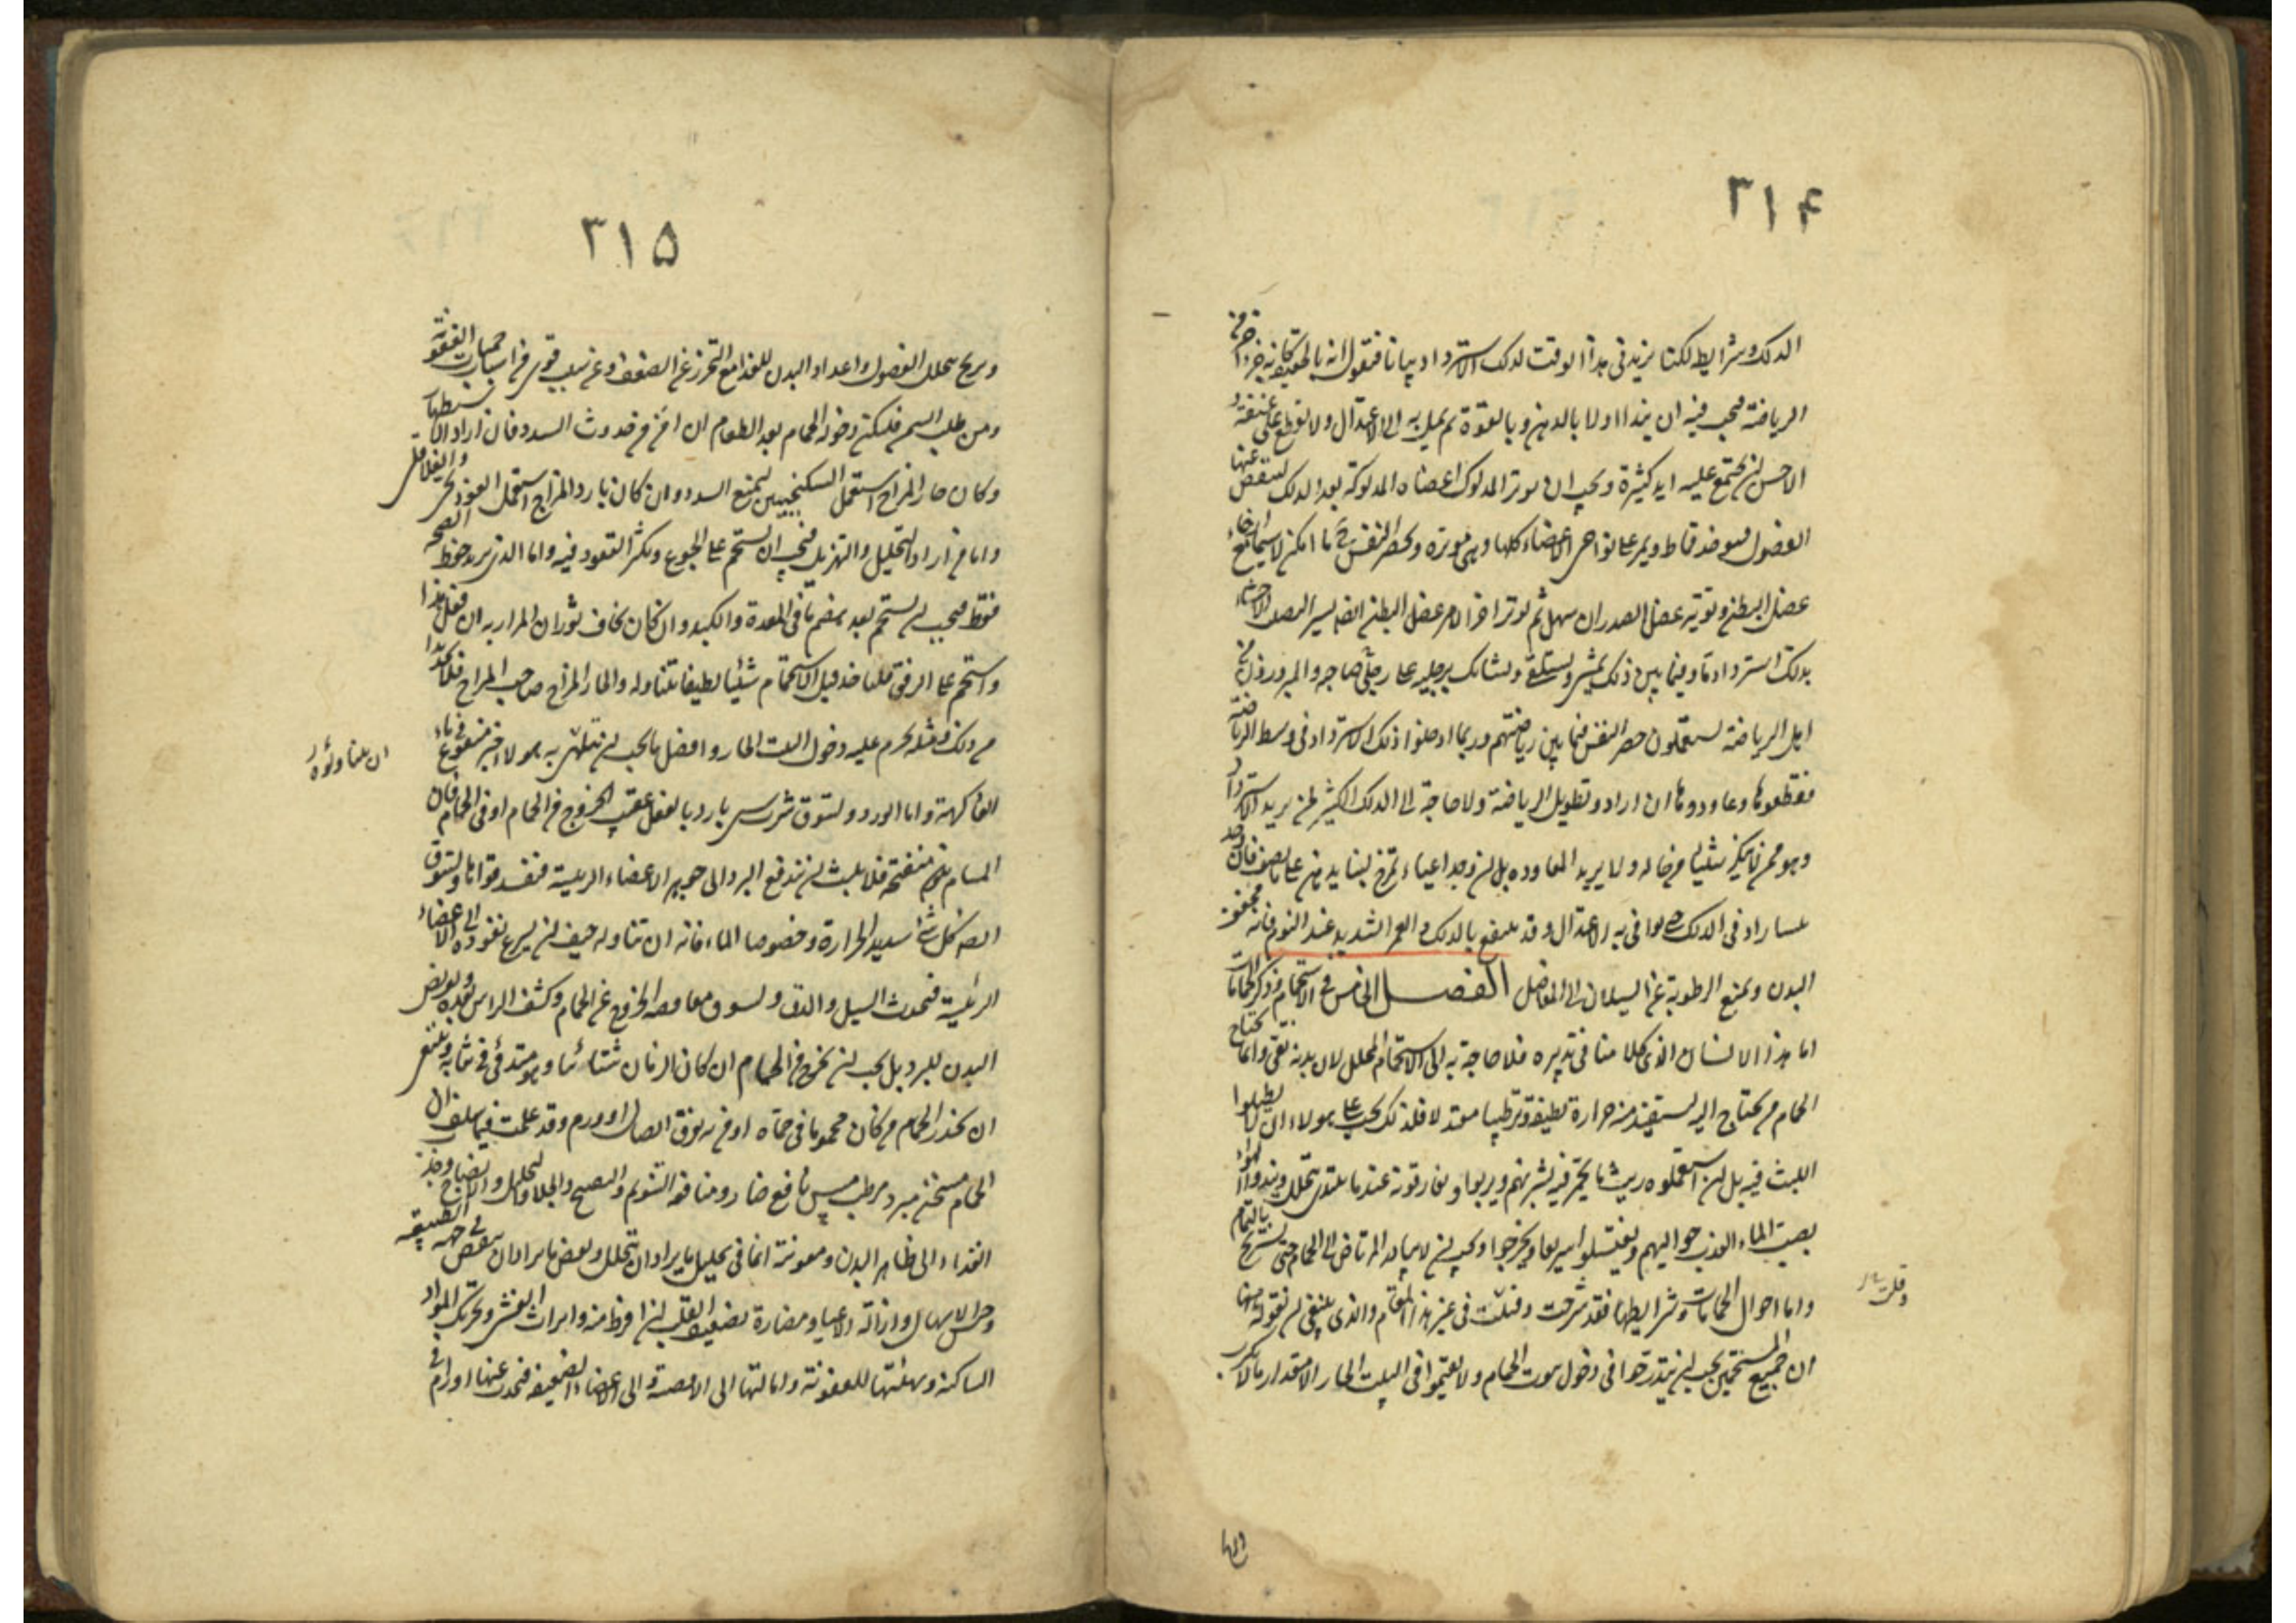 ٣١۴
الدلك وشرايطه لكنا نزيد فى هذا الوقت لدلك الاسترداد بيانا فنقول انه بالحقيقة كانه جزء اخر من
الرياضة فيجب فيه ان يبتدا اولا بالدهن وبالقوة ثم يميل به الى الاعتدال ولا يقطع على عنفه و
الاحسن ان يجتمع عليه ايد كثيرة ويجب ان يوتر المدلوك اعضاه المدلوكة بعد الدلك لينفض عنها
الفضول فيوخذ قماط ويمر على نواحى الاعضاء كلها وهى موترة ويحصر النفس ح ما امكن لا سيما مع ارخاء
عضل البطن وتوتير عضل الصدر ان سهل ثم يوتر اخر الامر عضل البطن ايضا يسيرا ليصيب الاحشاء
بذلك استرداد ما وفيما بين ذلك يمشى ويستلقى ويشابك برجليه على رجلى صاحبه والمبرزون من
اهل الرياضة يستعملون حصر النفس فيما بين رياضتهم وربما ادخلوا دلك الاسترداد فى وسط الرياضة
فقطعوها وعاودوها ان ارادوا تطويل الرياضة ولا حاجة الى الدلك الكثير لمن يريد الاسترداد
وهو ممن لا ينكر شيئا من حاله ولا يريد المعاوده بل ان وجد اعياء تمرخ لينا بدهن على ما نصف فان وجد
يبسا زاد فى الدلك حتى يوافى به الاعتدال وقد ينتفع بالدلك و الغمز الشديد عند النوم فانه يجفف
البدن ويمنع الرطوبة عن السيلان الى المفاصل الفصل الخامس فى الاستحمام وذكر الحمامات
اما هذا الانسان الذى كلامنا فى تدبيره فلا حاجة به الى الاستحمام المحلل لان بدنه نقى وانما يحتاج
الحمام من يحتاج اليه ليستفيد منه حرارة لطيفة وترطيبا معتدلا فلذلك يجب على هولاء ان لا يطيلوا
اللبث فيه بل ان استعملوه ريث ما يحمر فيه بشرتهم ويربوا ويفارقونه عندما يبتدى يتحلل ويندوا الهواء
بصب الماء العذب حواليهم ويغتسلوا سريعا ويخرجوا ويجب ان لا يبادر المرتاض الى الحمام حتى يستريح بالتمام
واما احوال الحمامات وشرايطها فقد شرحت وقيلت فى غير هذا المقام والذى ينبغى ان نقوله ههنا
ان جميع المستحمين يجب ان يتدرجوا فى دخول بيوت الحمام ولا يقيموا فى البيت الحار الا مقدار ما لا يكرب
٣١۵
ويربح بتحلل الفضول واعداد البدن للغذا مع التحرز عن الضعف وعن سبب قوى من اسباب حميات العفونة
ومن طلب السمن فليكن دخوله الحمام بعد الطعام ان امن من حدوث السدد فان اراد الاستظهار
وكان حار المزاج استعمل السكنجبين ليمنع السدد وان كان بارد المزاج استعمل الفوذنجى والفلافلى
واما من اراد التحليل والتهزيل فيجب ان يستحم على الجوع ويكثر القعود فيه واما الذى يريد حفظ الصحه
فقط فيجب ان يستحم بعد هضم ما فى المعدة والكبد وان كان يخاف ثوران المرار به ان فعل هذا
واستحم على الريق فلياخذ قبل الاستحمام شيئا لطيفا يتناوله والحار المزاج صاحب المرار فلا يجد بدا
من ذلك ومثله يحرم عليه دخول البيت الحار وافضل ما يجب ان يتلهى به هولاء خبز منقوع فى ماء
ان يتناولوه
الفاكهة و اما الورد وليتوق شرب شى بارد بالفعل عقيب الخروج من الحمام او فى الحمام فان
المسام يكون منفتحة فلا يلبث ان يندفع البرد الى جوهر الاعضاء الرئيسة فتفسد قواها وليتوق
ايضا كل شى شديد الحرارة وخصوصا الماء فانه ان تناوله خيف ان يسرع نفوذه الى الاعضاء
الرئيسة فيحدث السل والدق وليتوق معافصة الخروج عن الحمام وكشف الراس بعده وتعريض
البدن للبرد بل يجب ان يخرج من الحمام ان كان الزمان شتائيا وهو متدثر فى ثيابه وينبغى
ان يحذر الحمام من كان محموما فى حماه او من به تفرق اتصال او ورم وقد علمت فيما سلف ان
الحمام مسخن مبرد مرطب ميبس نافع ضار ومنافعه التنويم والتفتيح والجلا والتحليل والانضاج وجذب
الغذاء الى ظاهر البدن ومعونته انما فى تحليل ما يراد ان يتحلل ونفض ما يراد ان ينفض فى جهه الطبيعيه
وحبس الاسهال وازالة الاعياء ومضاره تضعيف القلب ان افرط منه وايراث الغشى وتحريك المواد
الساكنة وتهيئتها للعفونة وامالتها الى الافضية والى الاعضاء الضعيفة فيحدث عنها اورام فى